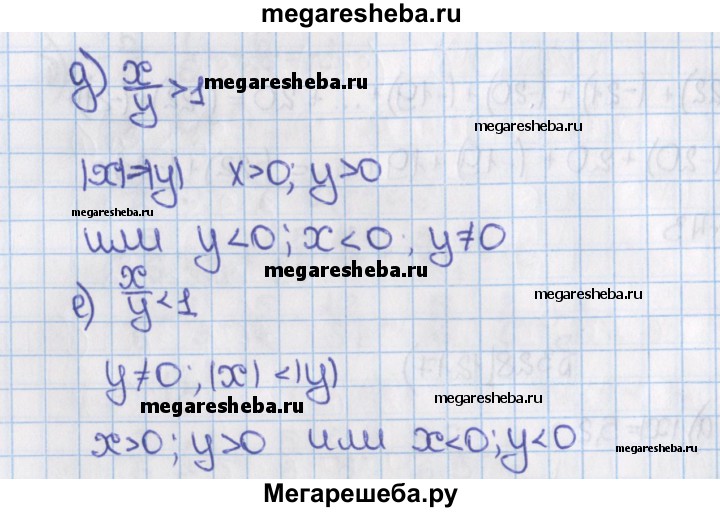 megaresheba.ru
д) x/y > 1 megaresheba.ru
megaresheba.ru
|x|=|y| x>0; y>0
megaresheba.ru
или y<0; x<0; y≠0
megaresheba.ru
е) x/y < 1
megaresheba.ru
y≠0; |x| < |y|
megaresheba.ru
megaresheba.ru
x>0; y>0 или x<0; y<0
megaresheba.ru
Мегарешеба.ру